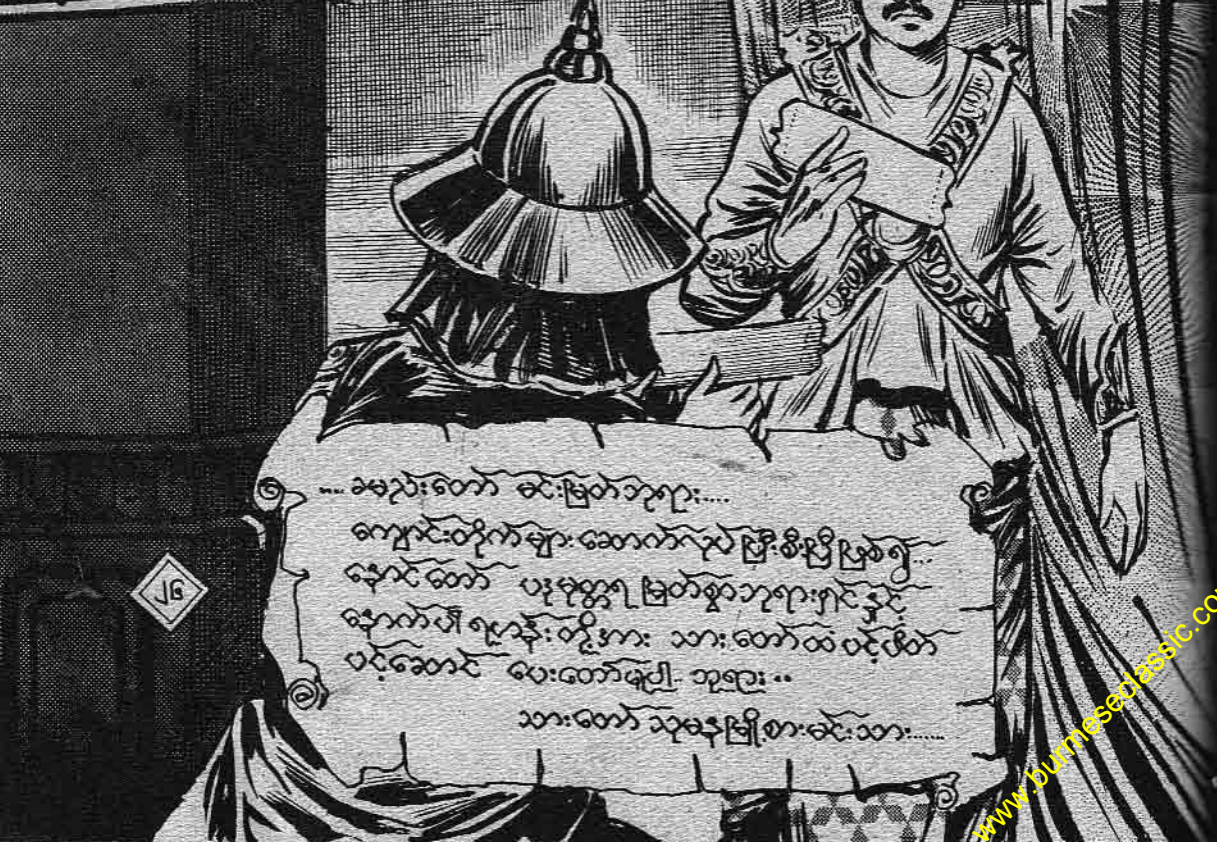 .... ခမည်းတော် မင်းမြတ်ဘုရား....
ကျောင်းတိုက်များ ဆောက်လုပ်ပြီးစီးပြီဖြစ်၍...
နောင်တော် ပဒုမုတ္တရ မြတ်စွာဘုရားရှင်နှင့်
နောက်ပါ ရဟန်းတို့အား သားတော်ထံ ပင့်ဖိတ်
ပင့်ဆောင် ပေးတော်မူပါ.. ဘုရား..
သားတော် သုမနမြို့စားမင်းသား......
၂၆
www.burmeseclassic.co